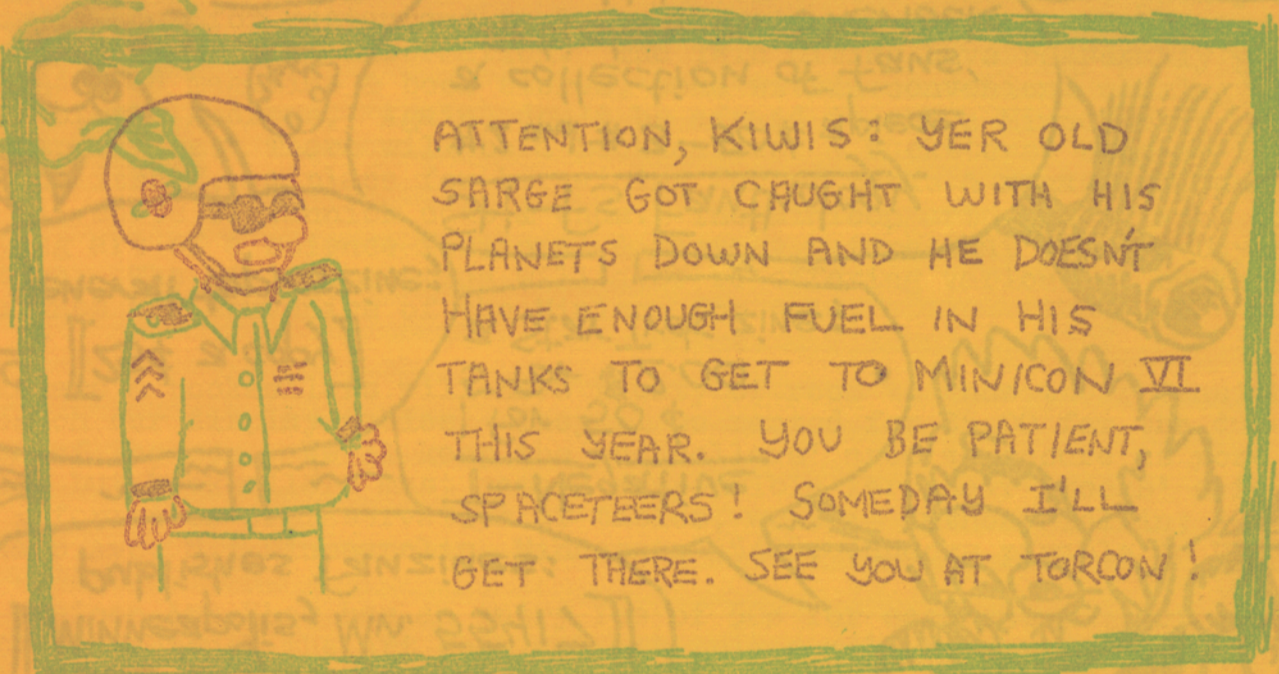 ATTENTION, KIWIS: YER OLD
SARGE GOT CAUGHT WITH HIS
PLANETS DOWN AND HE DOESN'T
HAVE ENOUGH FUEL IN HIS
TANKS TO GET TO MINICON VI
THIS YEAR. YOU BE PATIENT,
SPACETEERS! SOMEDAY I'LL
GET THERE. SEE YOU AT TORCON!